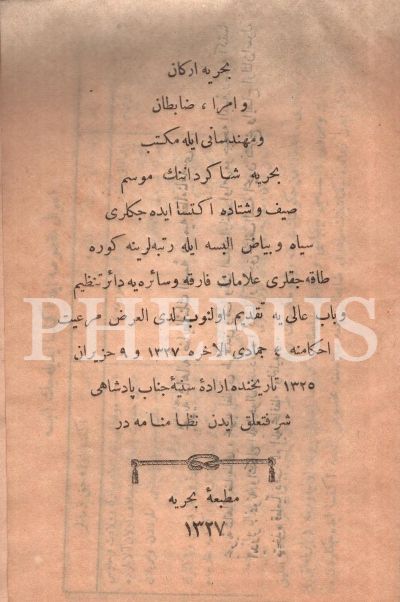 بحریه اركان
و امرا ، ضابطان
و مهندسانی ایله مکتب
بحریه شاكرداننك موسم
صیف و شتاده اكتسا ایده جكلری
سیاه و بیاض البسه ایله رتبه لرینه كوره
طاقه جقلری علامات فارقه و سائره یه دائر تنظیم
و باب عالی یه تقدیم اولنوب لدی العرض مرعیت
احكامنه ٤ جمادی الاخره ١٣٢٧ و ٩ حزیران
١٣٢٥ تاریخنده ارادهٔ سنیهٔ جناب پادشاهی
شرفتعلق ایدن نظامنامه در
مطبعهٔ بحریه
١٣٢٧
PHEBUS